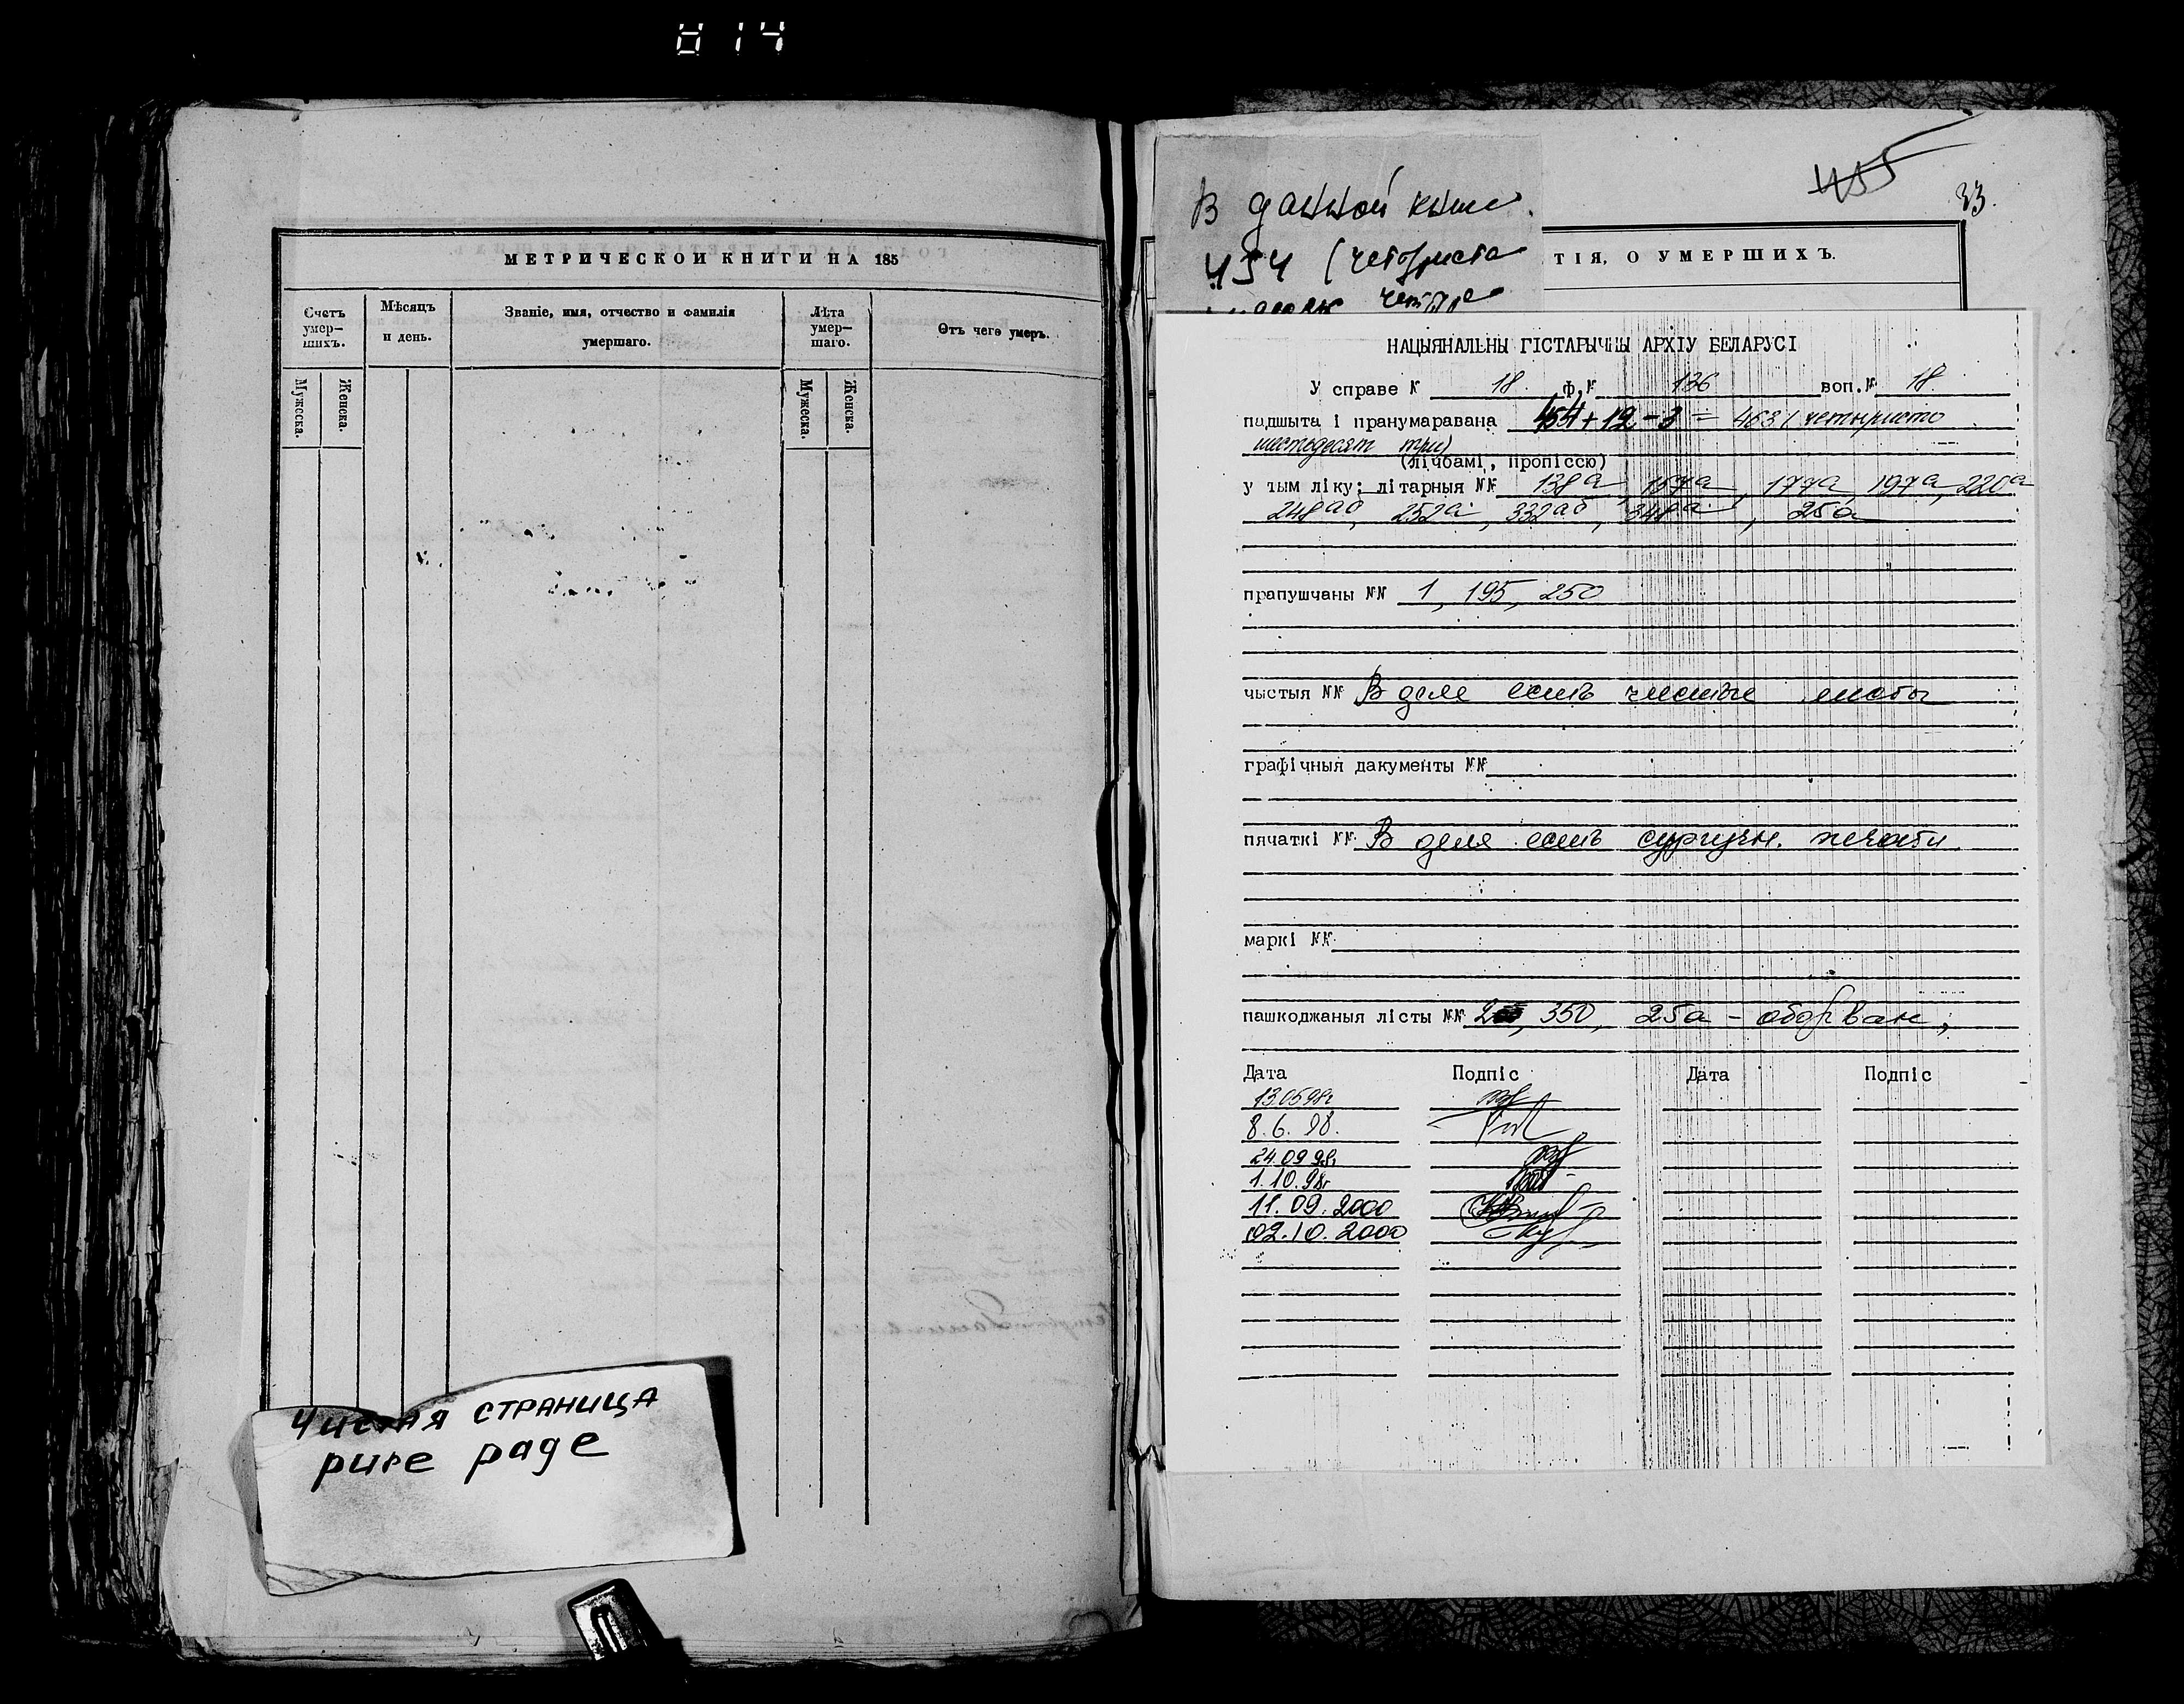 014
МЕТРИЧЕСКОЙ КНИГИ НА 185
Счетъ умер— шихъ.
Мѣсяцъ и день.
Званіе, имя, отчество и фамилія умершаго.
Лѣта умер— шаго.
Отъ чего умеръ.
Мужеска.
Женска.
Мужеска.
Женска.
Чистая СТРАНИЦА
pure page
455
33.
В данной книге
454 (четыреста
четыре
ТІЯ, О УМЕРШИХЪ.
НАЦЫЯНАЛЬНЫ ГІСТАРЫЧНЫ АРХІЎ БЕЛАРУСІ
У справе № 18 ф.№ 136 воп.№ 18
падшыта і пранумаравана 454+12-3=463 (четыриста
шестьдесят три)
(лічбамі, пропіссю)
у тым ліку: літарныя №№ 138а, 157а, 177а, 197а, 220а
248аб, 252а, 332аб, 348а, 25а
прапушчаны №№ 1, 195, 250
чыстыя №№ В деле есть чистые листы
графічныя дакументы №№
пячаткі №№ В деле есть сургучн. печати
маркі №№
пашкоджаныя лісты №№ 350, 25а - оборван;
Дата Подпіс Дата Подпіс
13.0598г
8.6.98.
24.09 98г
1.10.98г
11.09.2000
02.10.2000